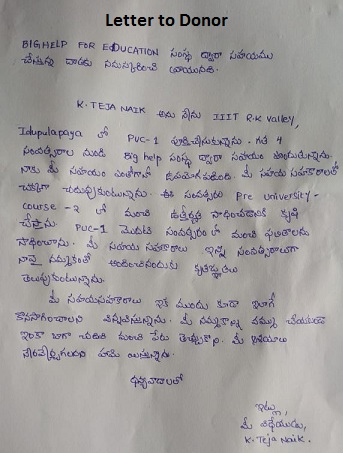 Letter to Donor
BIGHELP FOR EDUCATION సంస్థ ద్వారా సహాయము
చేస్తున్న దాతకు నమస్కరించి వ్రాయునది.
K. TEJA NAIK అను నేను IIIT R.K Valley,
Idupulapaya లో PUC-1 పూర్తిచేసుకున్నాను. గత 4
సంవత్సరాల నుండి Big help సంస్థ ద్వారా సహాయం పొందుతున్నాను.
నాకు మీ సహాయం ఎంతగానో ఉపయోగపడింది. మీ సహాయ సహకారాలతో
చక్కగా చదువుకుంటున్నాను. ఈ సంవత్సరం Pre University -
course - 2 లో మంచి ఉత్తీర్ణత సాధించడానికి కృషి
చేస్తాను. PUC-1 మొదటి సంవత్సరం లో మంచి ఫలితాలను
సాధించాను. మీ సహాయ సహకారాలు ఇన్ని సంవత్సరాలుగా
నాపై నమ్మకంతో అందించినందుకు కృతజ్ఞతలు
తెలుపుకుంటున్నాను.
మీ సహాయసహకారాలు ఇక ముందు కూడా ఇలాగే
కొనసాగించాలని విన్నవిస్తున్నాను. మీ నమ్మకాన్ని వమ్ము చేయకుండా
ఇంకా బాగా చదివి మంచి పేరు తెచ్చుకొని, మీ ఆశయాలు
నెరవేర్చగలనని హామీ ఇస్తున్నాను.
ధన్యవాదాలతో
ఇట్లు,
మీ విధేయుడు,
K. Teja Naik.